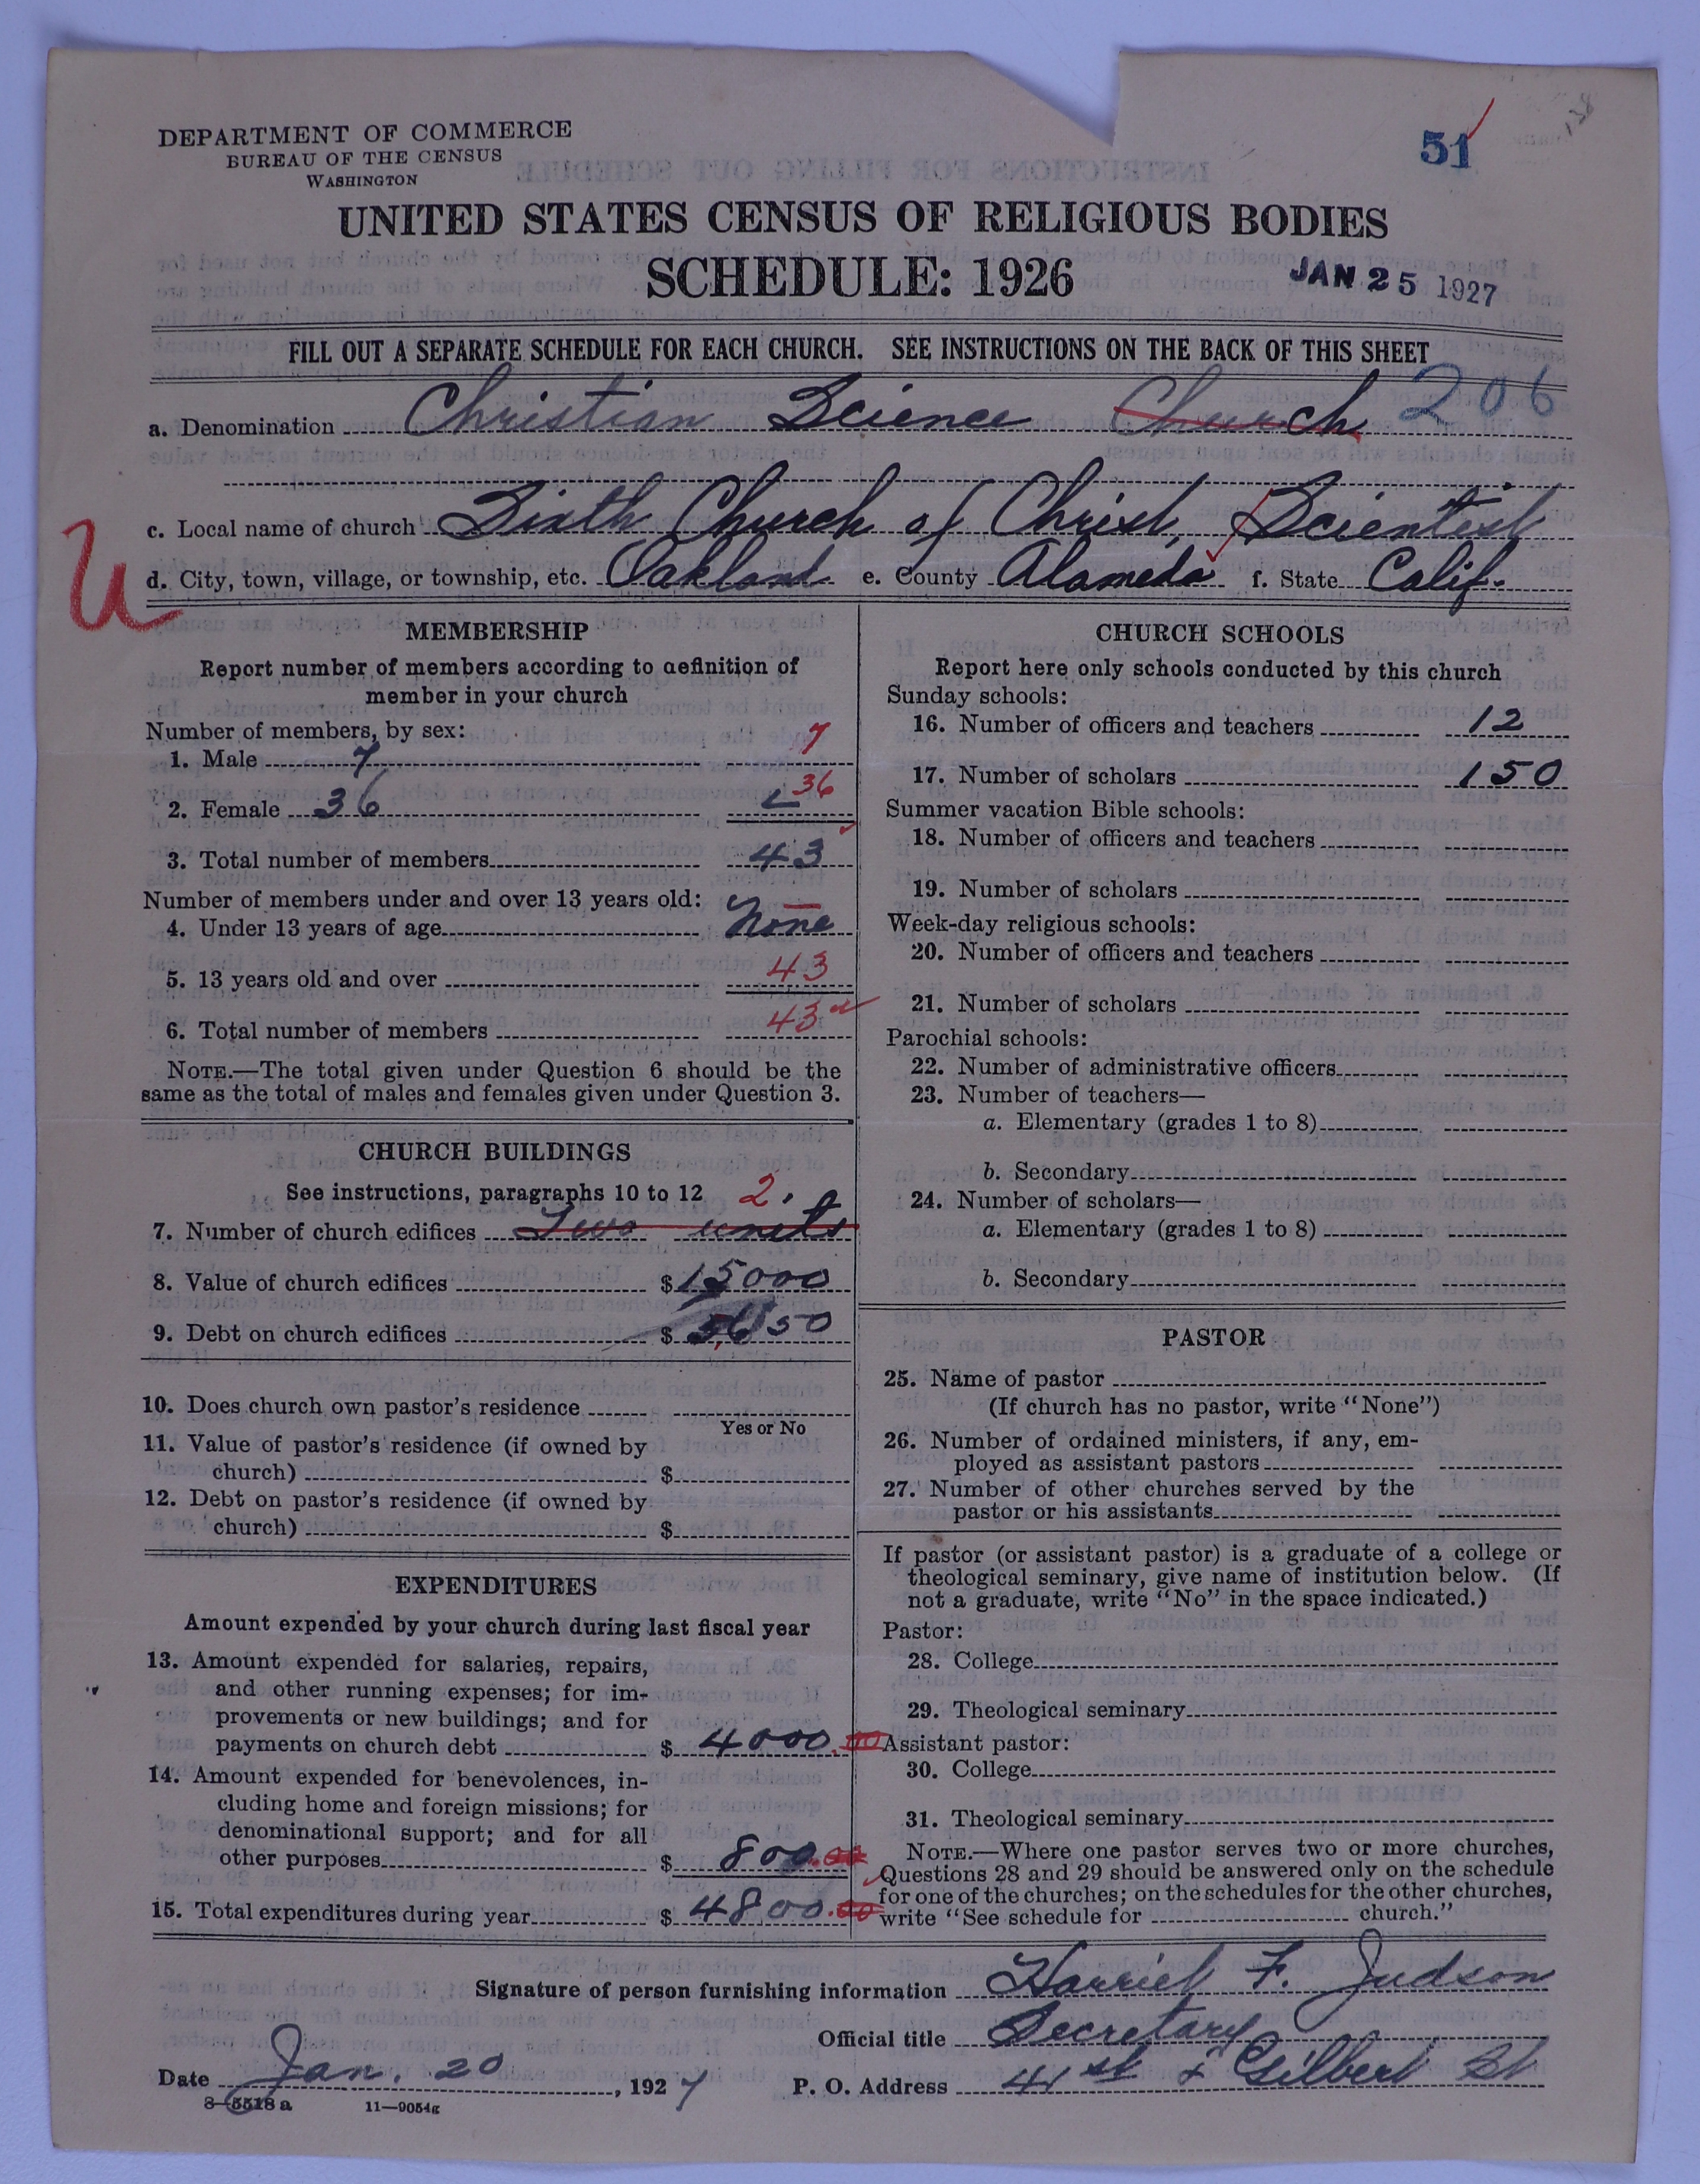 DEPARTMENT OF COMMERCE
BUREAU OF THE CENSUS
WASHINGTON
51
138
UNITED STATES CENSUS OF RELIGIOUS BODIES
SCHEDULE: 1926
JAN 25 1927
FILL OUT A SEPARATE SCHEDULE FOR EACH CHURCH. SEE INSTRUCTIONS ON THE BACK OF THIS SHEET
a. Denomination Christian Science Church 206
c. Local name of church Sixth Church of Christ, Scientist
U
d. City, town, village, or township, etc. Oakland e. County Alameda f. State Calif.
MEMBERSHIP
Report number of members according to definition of
member in your church
Number of members, by sex:
1. Male 7 7
2. Female 36 36
3. Total number of members 43
Number of members under and over 13 years old:
4. Under 13 years of age None
5. 13 years old and over 43
6. Total number of members 43
NOTE.—The total given under Question 6 should be the
same as the total of males and females given under Question 3.
CHURCH BUILDINGS
See instructions, paragraphs 10 to 12 2.
7. Number of church edifices Two units
8. Value of church edifices $ 15000
9. Debt on church edifices $ 5650
10. Does church own pastor's residence
Yes or No
11. Value of pastor's residence (if owned by
church) $
12. Debt on pastor's residence (if owned by
church) $
EXPENDITURES
Amount expended by your church during last fiscal year
13. Amount expended for salaries, repairs,
and other running expenses; for im-
provements or new buildings; and for
payments on church debt $ 4000.00
14. Amount expended for benevolences, in-
cluding home and foreign missions; for
denominational support; and for all
other purposes $ 800.00
15. Total expenditures during year $ 4800.00
CHURCH SCHOOLS
Report here only schools conducted by this church
Sunday schools:
16. Number of officers and teachers 12
17. Number of scholars 150
Summer vacation Bible schools:
18. Number of officers and teachers
19. Number of scholars
Week-day religious schools:
20. Number of officers and teachers
21. Number of scholars
Parochial schools:
22. Number of administrative officers
23. Number of teachers—
a. Elementary (grades 1 to 8)
b. Secondary
24. Number of scholars—
a. Elementary (grades 1 to 8)
b. Secondary
PASTOR
25. Name of pastor
(If church has no pastor, write "None")
26. Number of ordained ministers, if any, em-
ployed as assistant pastors
27. Number of other churches served by the
pastor or his assistants
If pastor (or assistant pastor) is a graduate of a college or
theological seminary, give name of institution below. (If
not a graduate, write "No" in the space indicated.)
Pastor:
28. College
29. Theological seminary
Assistant pastor:
30. College
31. Theological seminary
NOTE.—Where one pastor serves two or more churches,
Questions 28 and 29 should be answered only on the schedule
for one of the churches; on the schedules for the other churches,
write "See schedule for church."
Signature of person furnishing information Harriet F. Judson
Official title Secretary
Date Jan. 20, 1927 P. O. Address 41st & Gilbert St
8—5518a 11—9054g